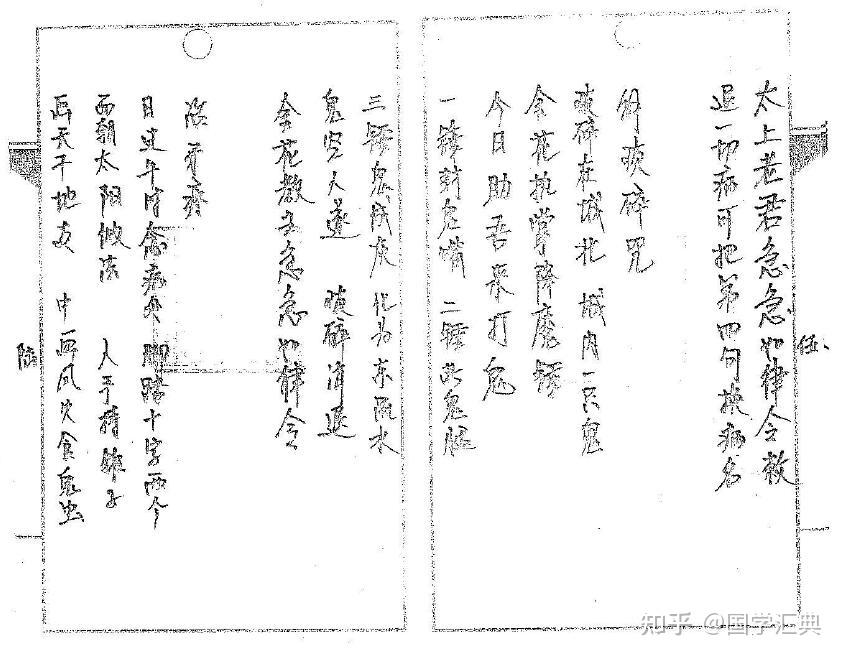 太上老君急急如律令敕
退一切病可把第四句换病名
解痰碎咒
痰碎在城北 城内一只鬼
金花执掌降魔锣
今日助吾来打鬼
一锣封鬼嘴 二锣断鬼腿
三锣鬼成灰 化为东流水
鬼空人遂 痰碎消退
金花教主急急如律令
伍、
治牙疼
日过午时令病人脚踏十字两个
西朝太阳做法 人手持
画天干地支 中画风火食鬼虫
陆
知乎 @国学汇典